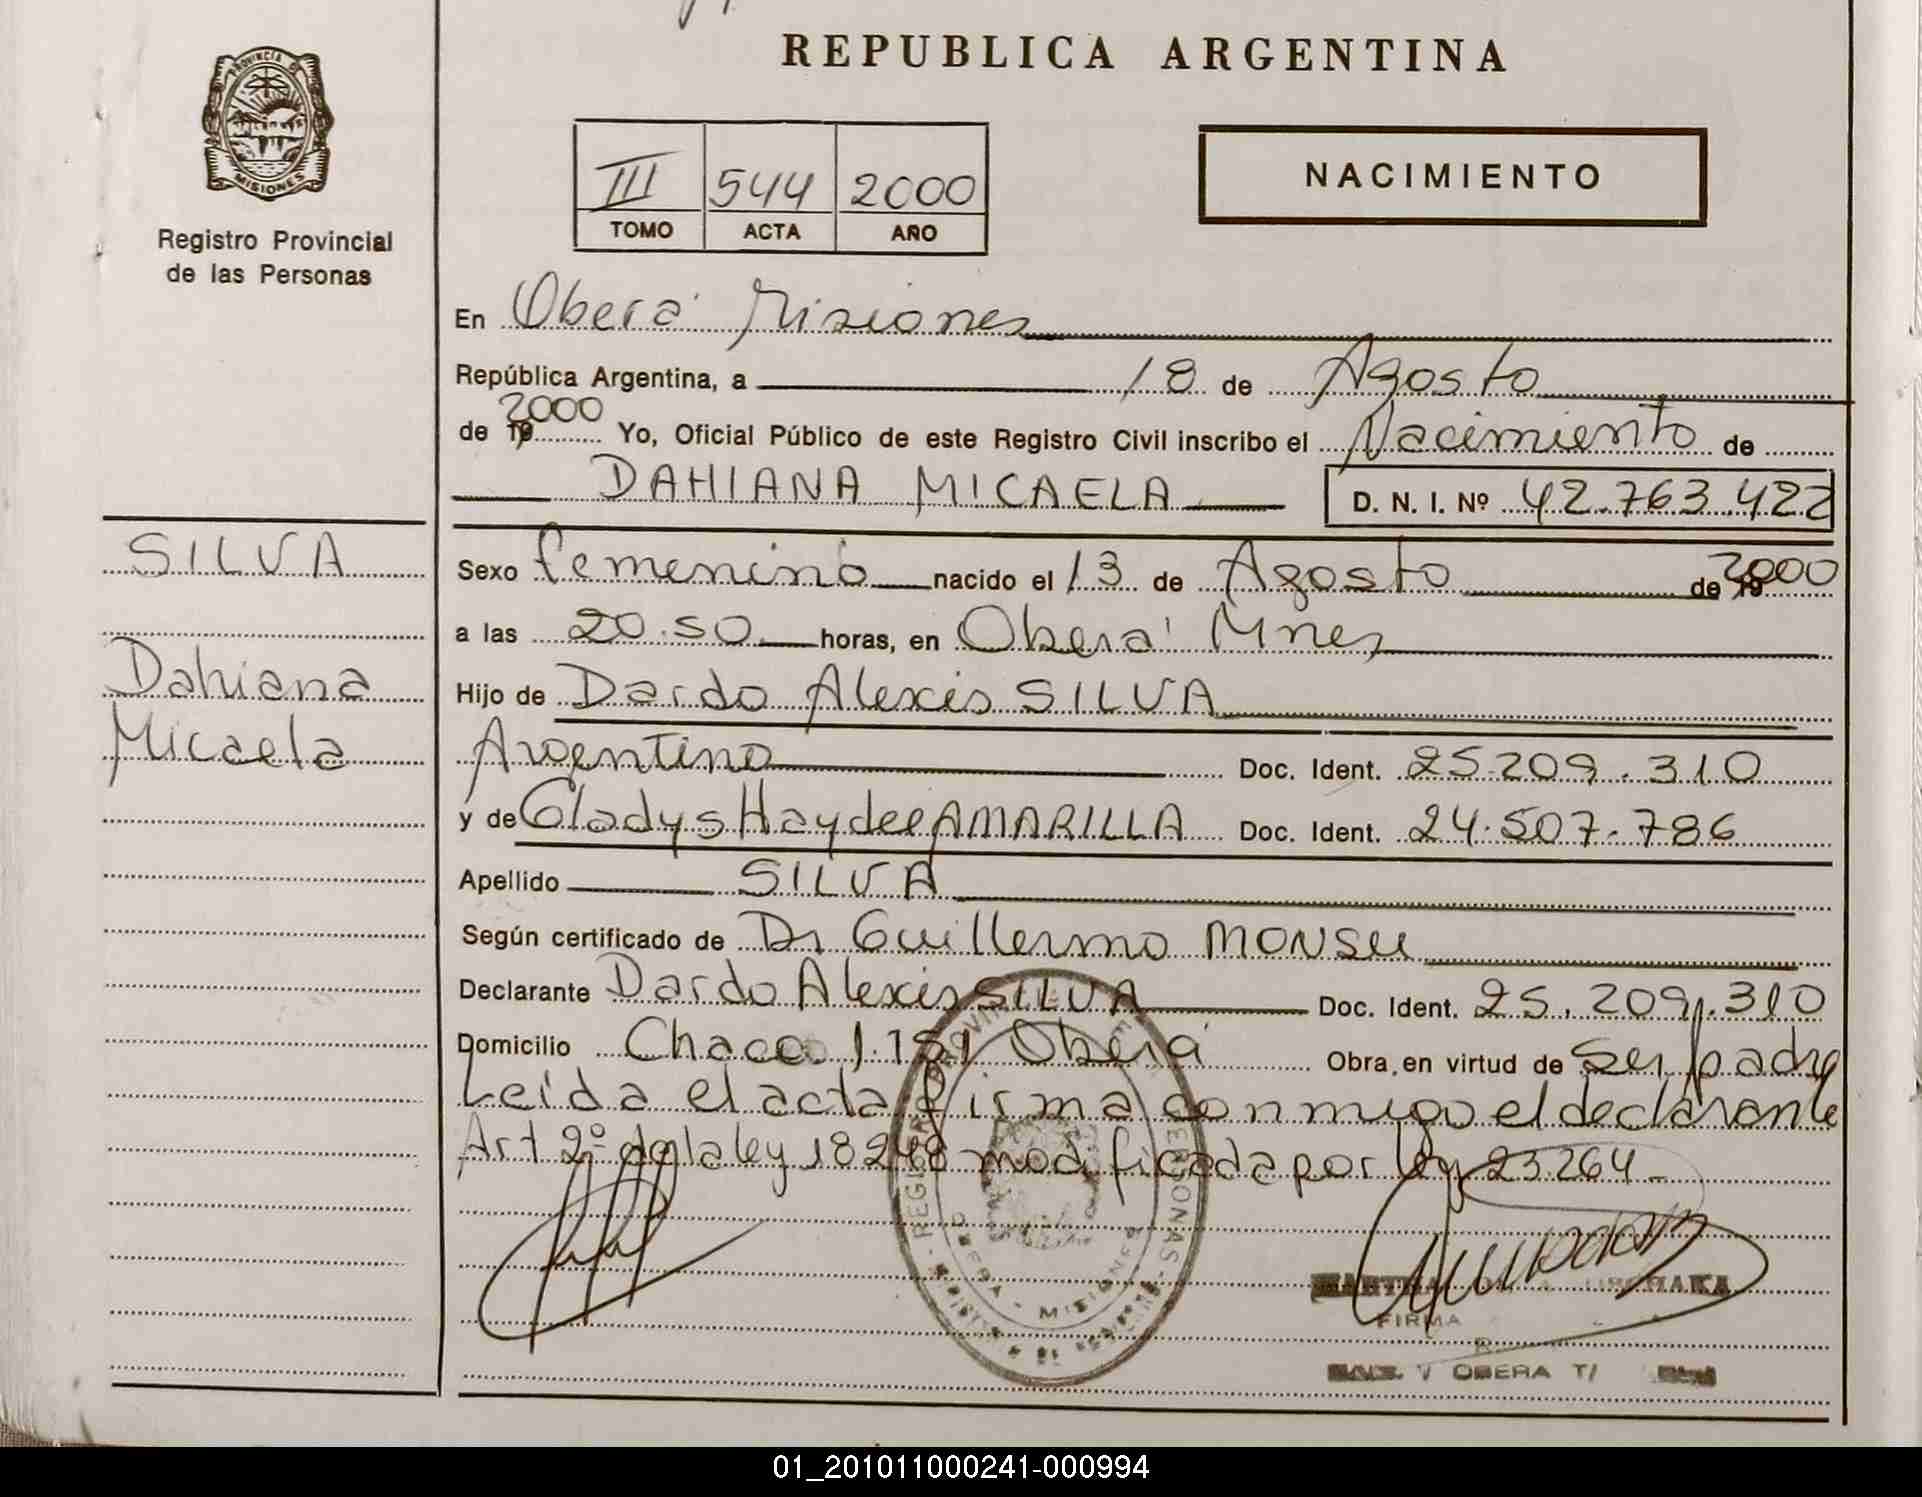 REPUBLICA ARGENTINA
PROVINCIA DE
MISIONES
Registro Provincial
de las Personas
III 544 2000
TOMO ACTA AÑO
NACIMIENTO
En Oberá Misiones
República Argentina, a 18 de Agosto
de 2000 Yo, Oficial Público de este Registro Civil inscribo el Nacimiento de
DAHIANA MICAELA D. N. I. Nº 42.763.422
SILVA
Dahiana
Micaela
Sexo femenino nacido el 13 de Agosto de 2000
a las 20.50 horas, en Oberá Mnes
Hijo de Dardo Alexis SILVA
Argentino Doc. Ident. 25.209.310
y de Gladys Haydee AMARILLA Doc. Ident. 24.507.786
Apellido SILVA
Según certificado de Dr Guillermo MONSU
Declarante Dardo Alexis SILVA Doc. Ident. 25.209.310
Domicilio Chaco Oberá Obra, en virtud de ser padre
Leída el acta firma conmigo el declarante
Art 2º de la ley 18248 modificada por ley 23.264
OBERA - MISIONES
FIRMA
OBERA
01_201011000241-000994